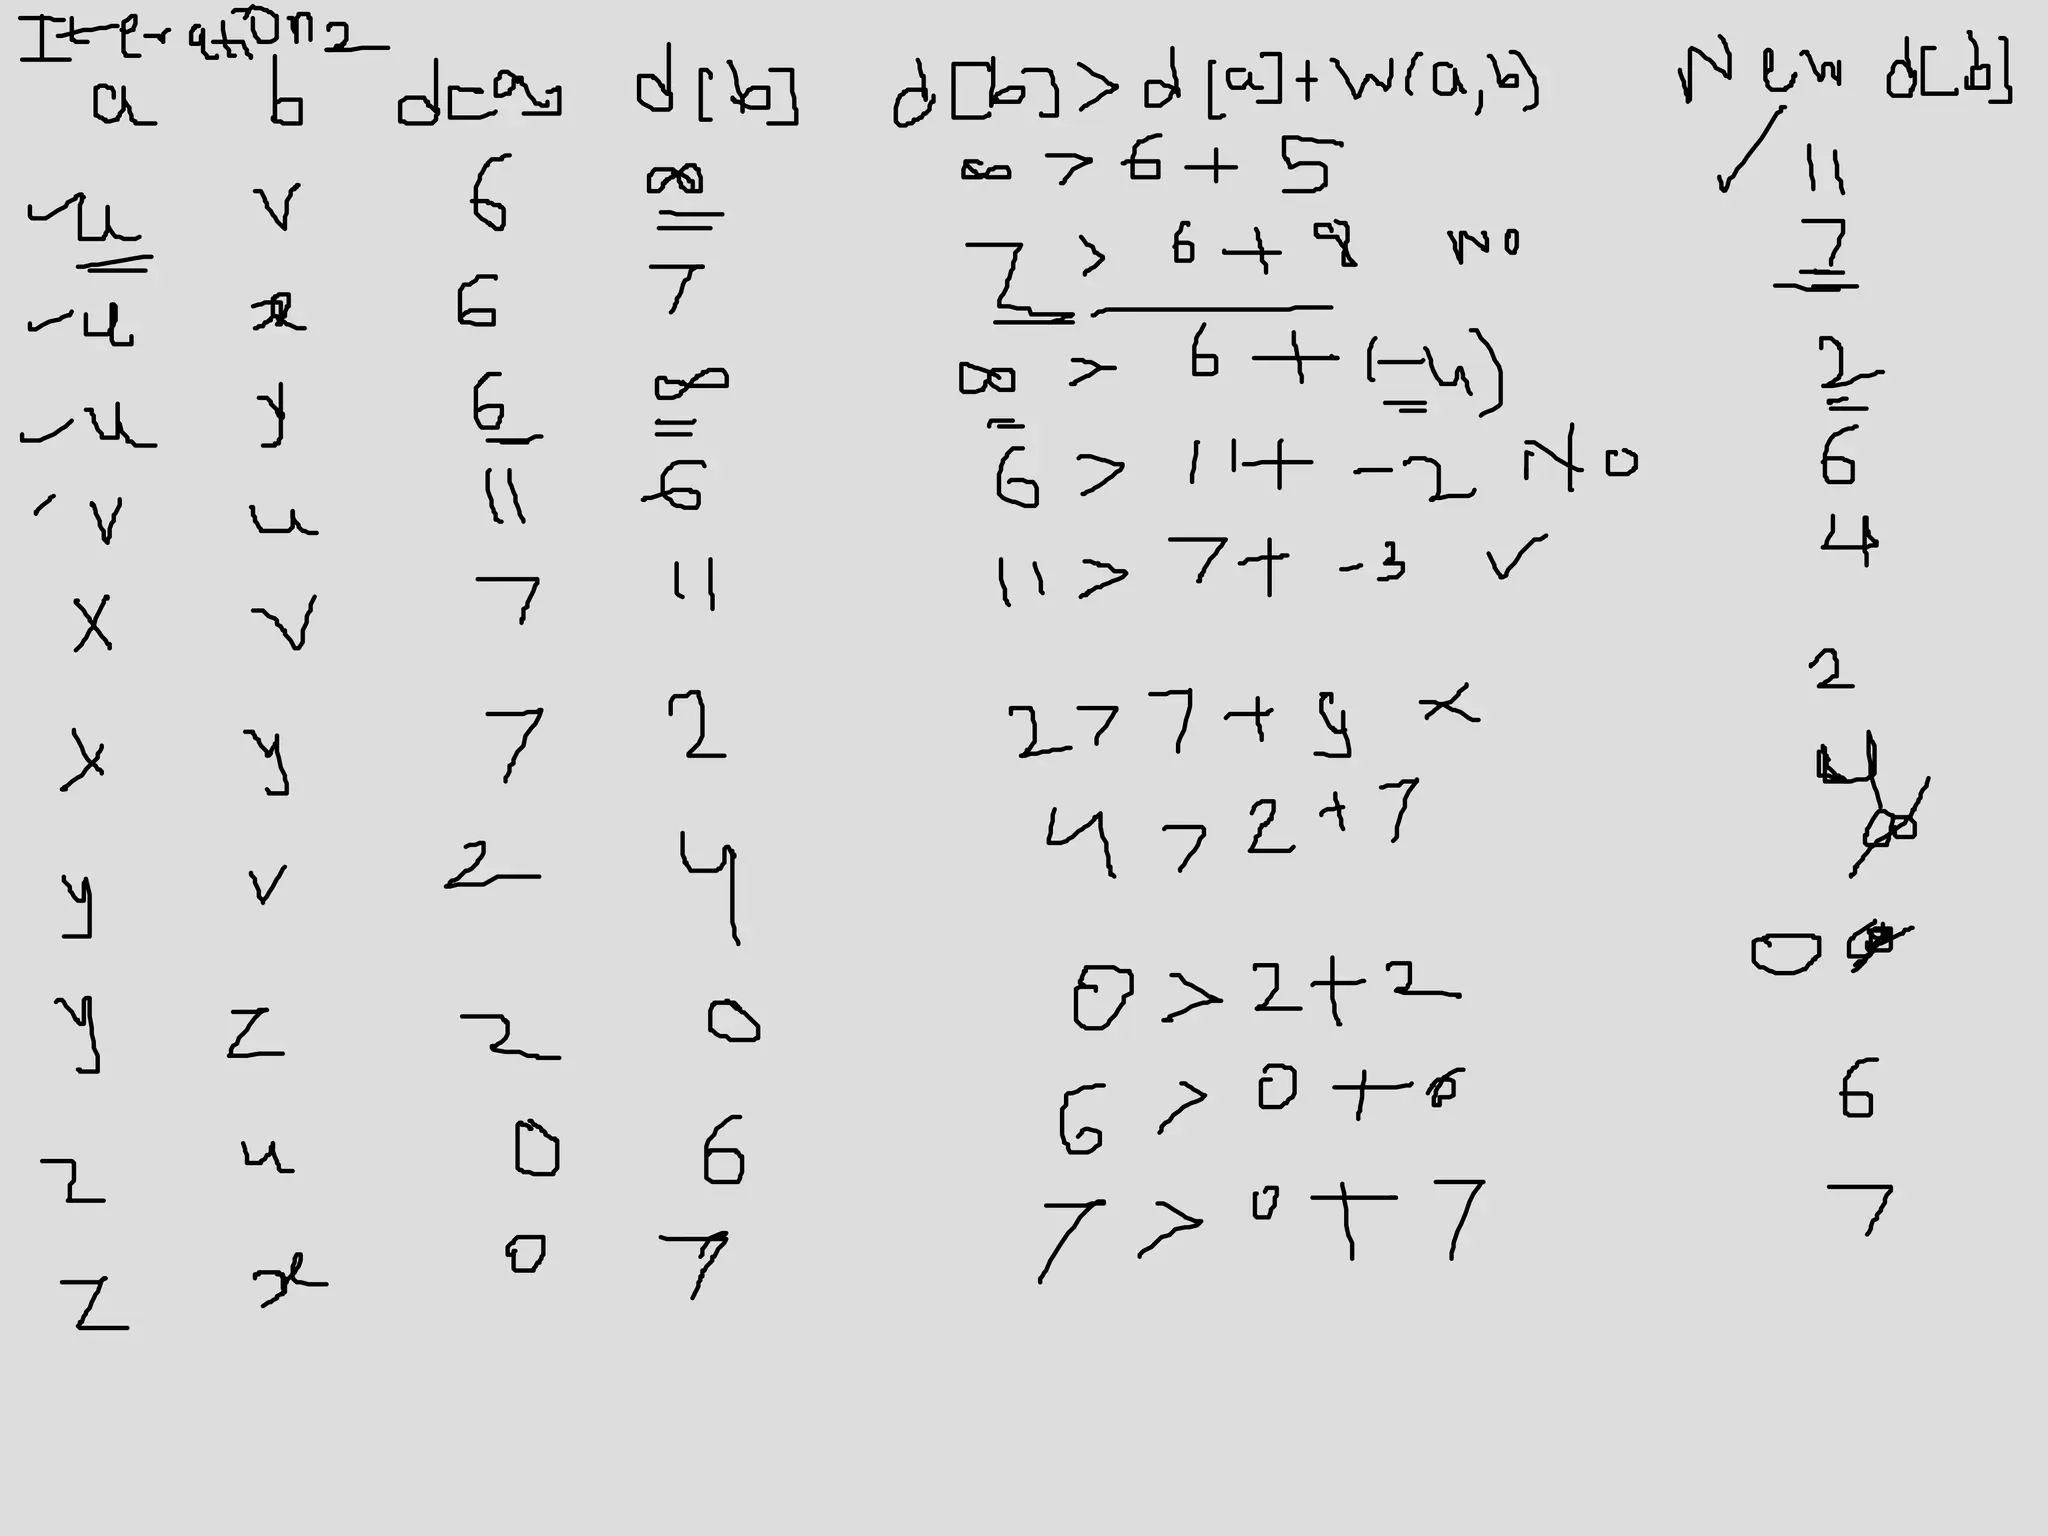 Iteration 2
a b d[a] d[b] d[b] > d[a] + W(a,b) New d[b]
u v 6 ∞ ∞ > 6 + 5 ✓ 11
u x 6 7 7 > 6 + 8 NO 7
u y 6 ∞ ∞ > 6 + (-4) 2
v u 11 6 6 > 11 + -2 NO 6
x v 7 11 11 > 7 + -3 ✓ 4
x y 7 2 2 > 7 + y × 2
y v 2 4 4 > 2 + 7 4
y z 2 0 0 > 2 + 2 0
z u 0 6 6 > 0 + 6 6
z x 0 7 7 > 0 + 7 7